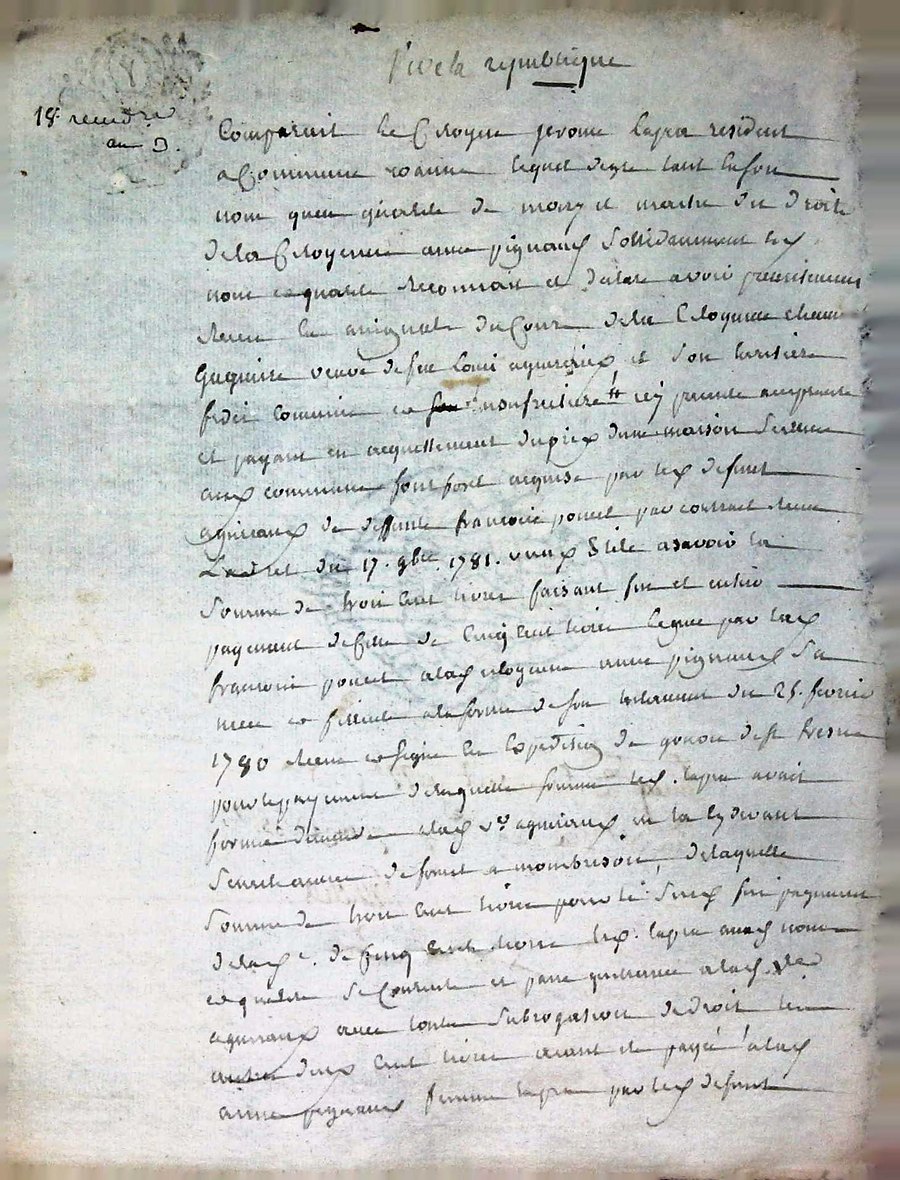 Vive la republique
18 vendre
an 3.
Comparait le Citoyen jerome lapra resident
a Commune roanne lequel degre tant en son
nom quen qualité de mary et maitre des droits
de la Citoyenne anne pignaux sollidairement
nom et qualité reconnait et declare avoir presentement
receu en assignats du Cours de la Citoyenne
veuve de feu Louis agueriaux et son heritiere
fidei commise et usufruitiere icy presente acceptante
et payant en acquittement du prix dune maison
aux communs font fort acquise par led defunt
agueriaux de deffunte francoise poncet par contract receu
du 17. 9bre 1781. vieux Stile a savoir la
Somme de trois cent livres faisant fin et entier
payement de celle de Cinq cent livres leguée par lad
francoise poncet a lad citoyenne anne pignaux sa
niece et filleule a la forme de son testament du 25. fevrier
1780 receu et signé en Expedition de
pour le payement de laquelle somme led. lapra avait
formé demande a lad ve agueriaux en la cy devant
Senechaussée de forest a montbrison, de laquelle
Somme de trois cent livres pour le susd fin payement
de lad e. de Cinq cent livres led. lapra auxd nom
et qualité se Contente et passe quittance a lad. ve
agueriaux avec toute Subrogation de droit les
autres deux cent livres ayant été payé a lad
anne pignaux femme lapra par led defunt